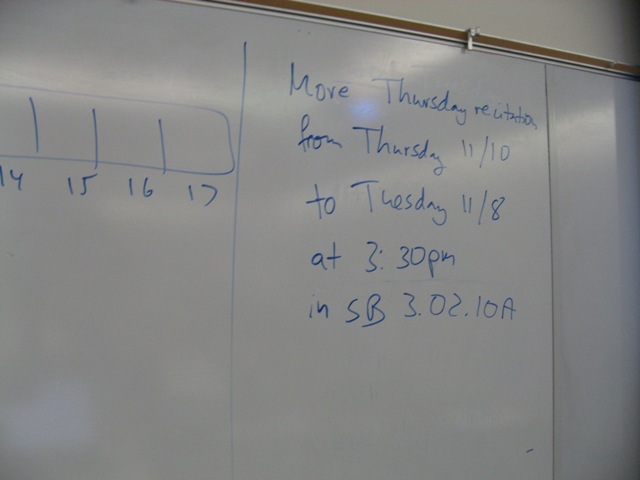 More Thursday recitation
from Thursday 11/10
to Tuesday 11/8
at 3:30pm
in SB 3.02.10A
14 15 16 17